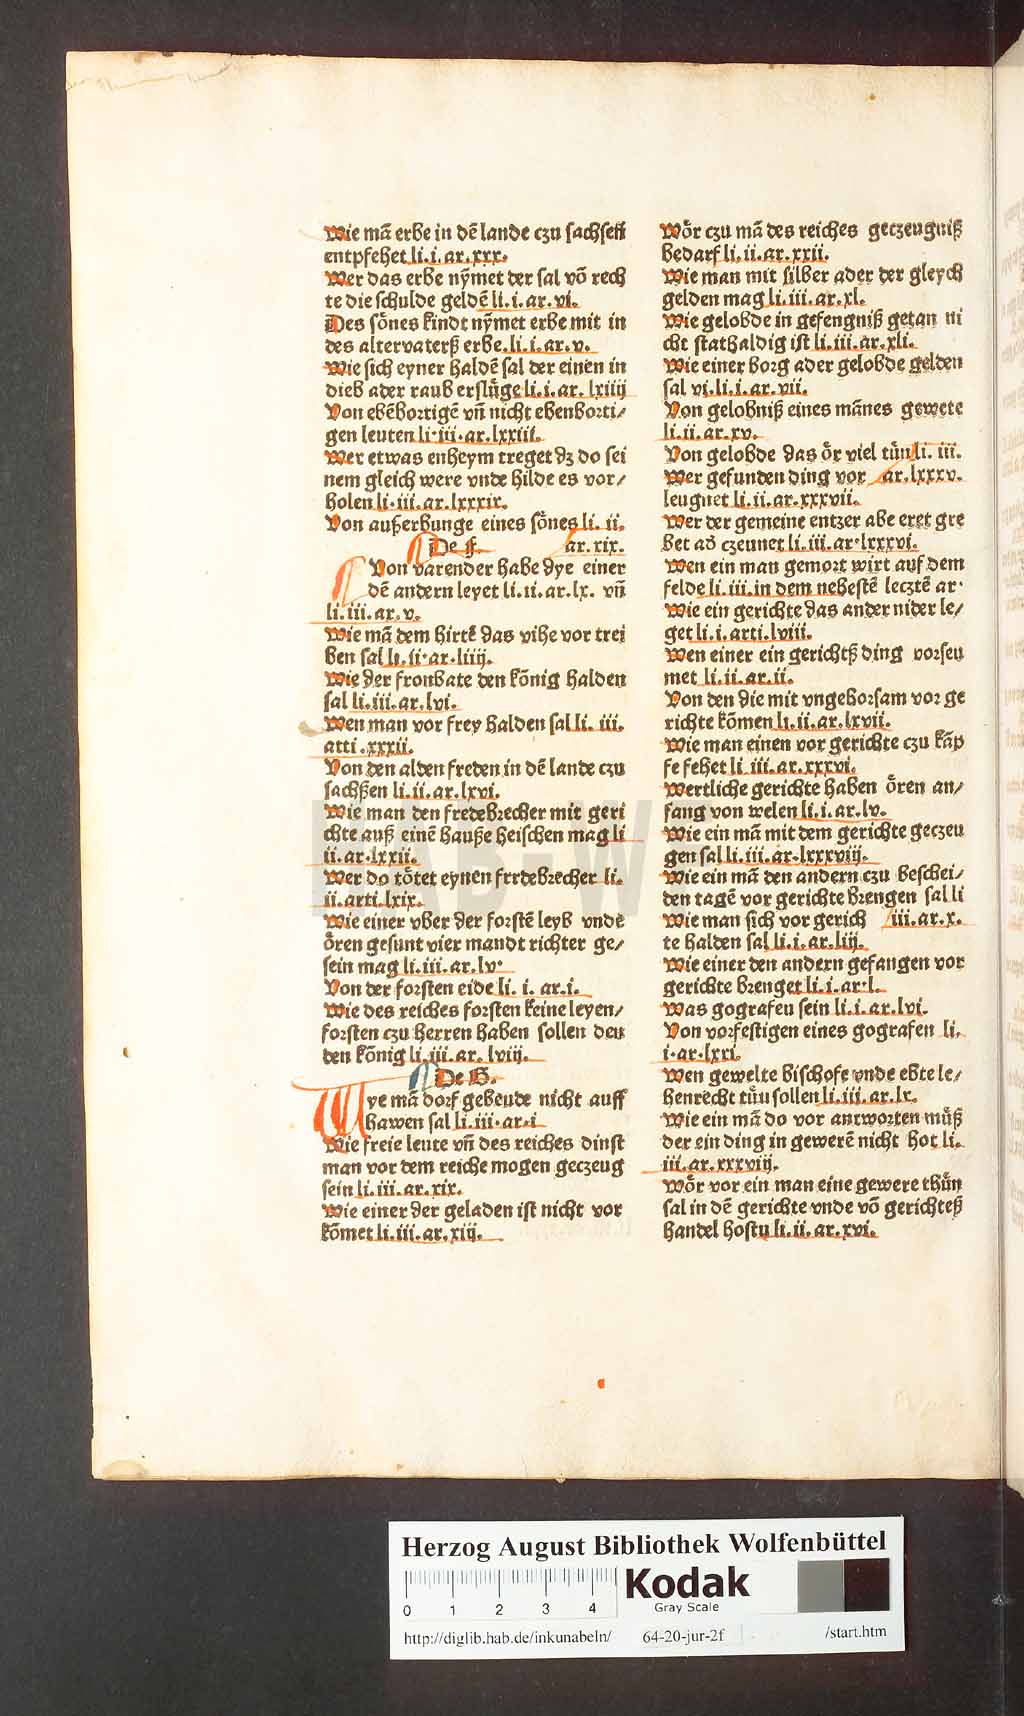 Wie mã erbe in dẽ lande czu sachsen
entpfehet li. i. ar. xxx.
Wer das erbe nỹmet der sal võ rech
te die schulde geldẽ li. i. ar. vi.
Des sones kindt nỹmet erbe mit in
des altervaterß erbe. li. i. ar. v.
Wie sich eyner haldẽ sal der einen in
dieb ader raub erslůge li. i. ar. lxiiij
Von ebẽbortigẽ vñ nicht ebenborti/
gen leuten li. iii. ar. lxxiii.
Wer etwas enheym treget dz do sei
nem gleich were vnde hilde es vor/
holen li. iii. ar. lxxxix.
Von außerbunge eines sones li. ii.
ar. xix.
De F.
Von varender habe dye einer
dẽ andern leyet li. ii. ar. lx. vñ
li. iii. ar. v.
Wie mã dem hirtẽ das vihe vor trei
ben sal li. ii. ar. liiij.
Wie der fronbate den kőnig halden
sal li. iii. ar. lvi.
Wen man vor frey halden sal li. iii.
atti. xxxii.
Von den alden freden in dẽ lande czu
sachßen li. ii. ar. lxvi.
Wie man den fredebrecher mit geri
chte auß einẽ hauße heischen mag li
ii. ar. lxxii.
Wer do tőtet eynen frrdebrecher li.
ii. arti. lxix.
Wie einer vber der forstẽ leyb vnde
őren gesunt vier mandt richter ge/
sein mag li. iii. ar. lv.
Von der forsten eide li. i. ar. i.
Wie des reiches forsten keine leyen/
forsten czu herren haben sollen den
den kőnig li. iii. ar. lviij.
De G.
Wye mã dorf gebeude nicht auff
hawen sal li. iii. ar. i
Wie freie leute vñ des reiches dinst
man vor dem reiche mogen geczeug
sein li. iii. ar. xix.
Wie einer der geladen ist nicht vor
kőmet li. iii. ar. xiij.
Wőr czu mã des reiches geczeugniß
bedarf li. ii. ar. xxii.
Wie man mit silber ader der gleych
gelden mag li. iii. ar. xl.
Wie gelobde in gefengniß getan ni
cht stathaldig ist li. iii. ar. xli.
Wie einer borg ader gelobde gelden
sal vi. li. i. ar. vii.
Von gelobniß eines mãnes gewete
li. ii. ar. xv.
Von gelobde das őr viel tůn li. iii.
Wer gefunden ding vor ar. lxxxv.
leugnet li. ii. ar. xxxvii.
Wer der gemeine entzer abe eret gre
bet ad czeunet li. iii. ar. lxxxvi.
Wen ein man gemort wirt auf dem
felde li. iii. in dem nehestẽ lecztẽ ar.
Wie ein gerichte das ander nider le/
get li. i. arti. lviii.
Wen einer ein gerichtß ding vorseu
met li. ii. ar. ii.
Von den die mit vngehorsam vor ge
richte kőmen li. ii. ar. lxvii.
Wie man einen vor gerichte czu kãp
fe fehet li. iii. ar. xxxvi.
Wertliche gerichte haben őren an/
fang von welen li. i. ar. lv.
Wie ein mã mit dem gerichte geczeu
gen sal li. iii. ar. lxxxviij.
Wie ein mã den andern czu beschei/
den tagẽ vor gerichte brengen sal li
Wie man sich vor gerich iii. ar. x.
te halden sal li. i. ar. liij.
Wie einer den andern gefangen vor
gerichte brenget li. i. ar. l.
Was gografen sein li. i. ar. lvi.
Von vorfestigen eines gografen li.
i. ar. lxxi.
Wen gewelte bischofe vnde ebte le/
henrecht tůn sollen li. iii. ar. lx.
Wie ein mã do vor antworten můß
der ein ding in gewerẽ nicht hot li.
iii. ar. xxxviij.
Wőr vor ein man eine gewere thůn
sal in dẽ gerichte vnde võ gerichteß
handel hostu li. ii. ar. xvi.
HAB-WF
Herzog August Bibliothek Wolfenbüttel
0 1 2 3 4
Kodak
Gray Scale
http://diglib.hab.de/inkunabeln/ 64-20-jur-2f /start.htm